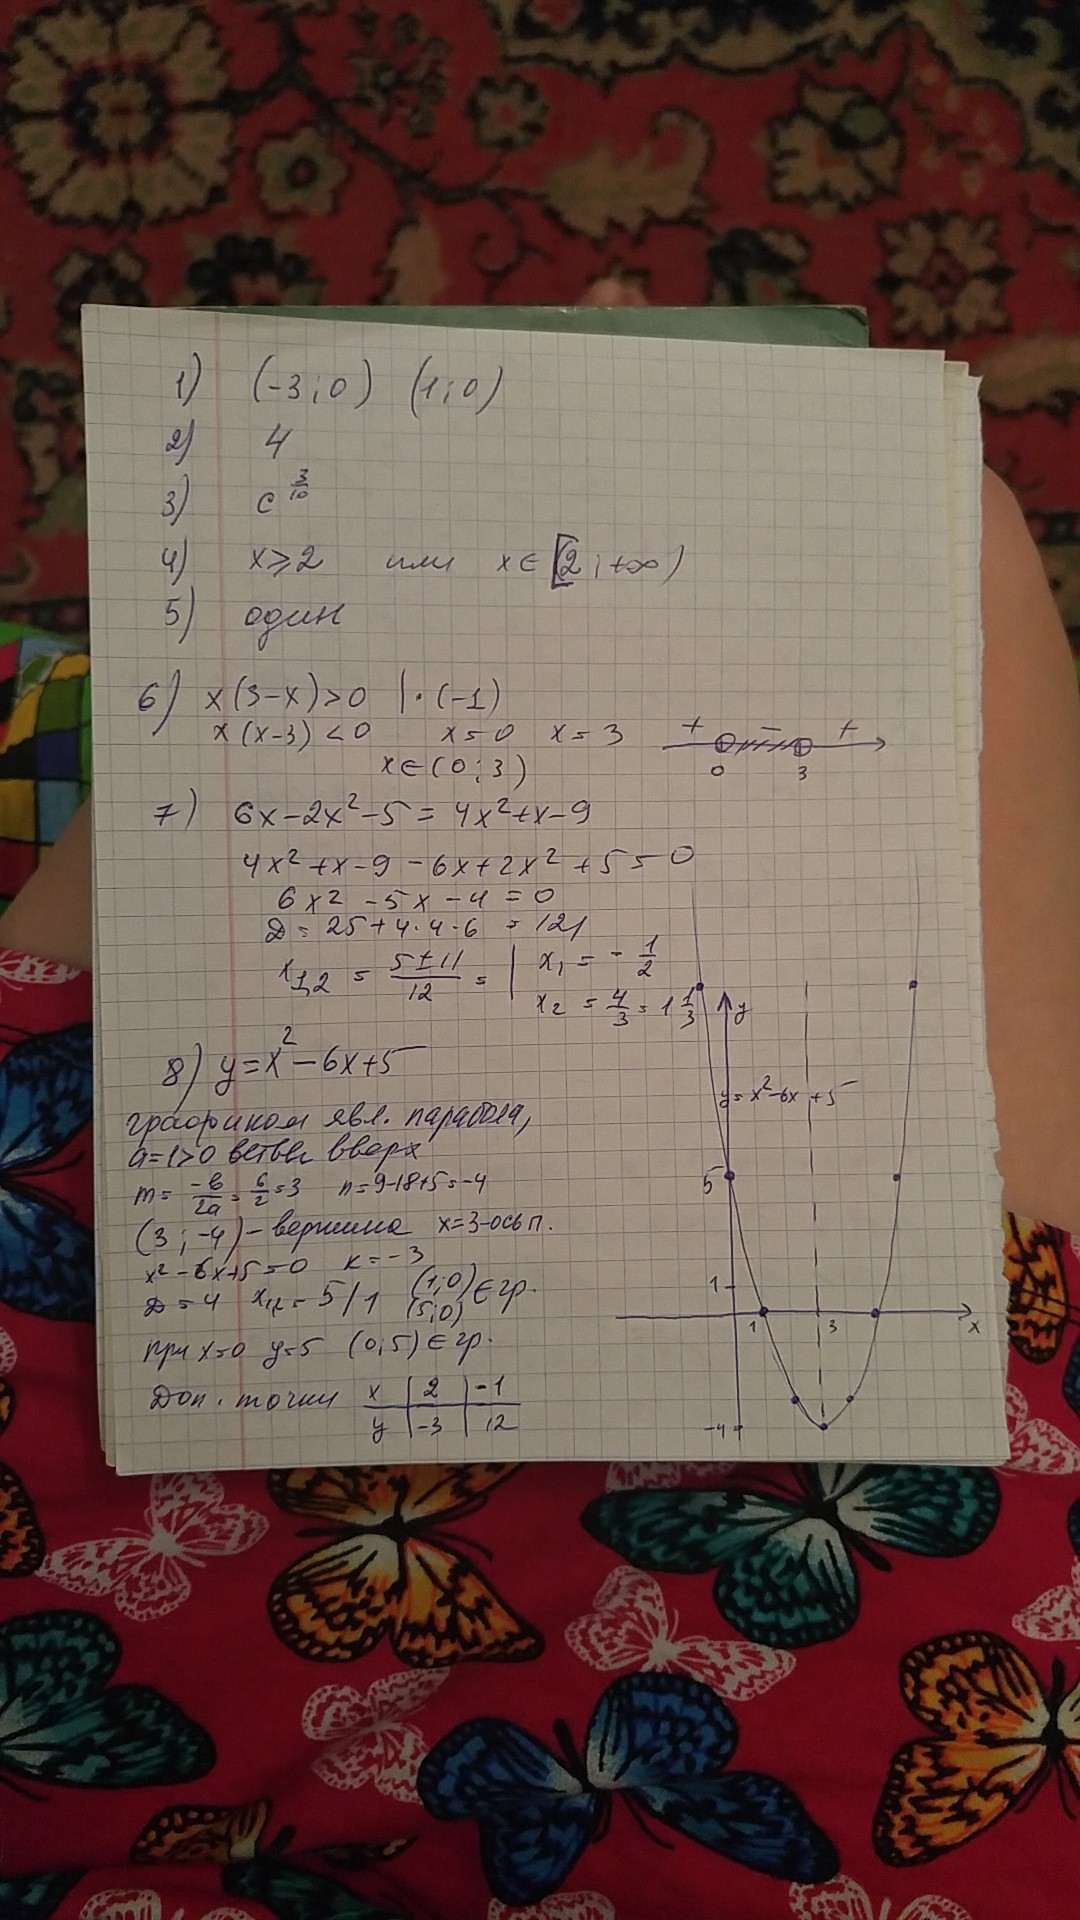 1) (-3;0) (1;0)
2) 4
3) c^(3/10)
4) x⩾2 или x∈[2;+∞)
5) один
6) x(3-x)>0 |·(-1)
x(x-3)<0 x=0 x=3
+ - +
0 3
x∈(0;3)
7) 6x-2x²-5=4x²+x-9
4x²+x-9-6x+2x²+5=0
6x²-5x-4=0
D=25+4·4·6=121
x₁,₂ = (5±11)/12 = | x₁ = -1/2
x₂ = 4/3 = 1 1/3
8) y=x²-6x+5
графиком явл. парабола,
a=1>0 ветви вверх
m= -b/2a = 6/2 =3 n=9-18+5=-4
(3;-4)-вершина x=3-ось п.
x²-6x+5=0 k=-3
D=4 x₁,₂=5/1 (1;0) (5;0) ∈гр.
при x=0 y=5 (0;5)∈гр.
Доп. точки x | 2 | -1
y | -3 | 12
y
y=x²-6x+5
5
1
1 3 x
-4